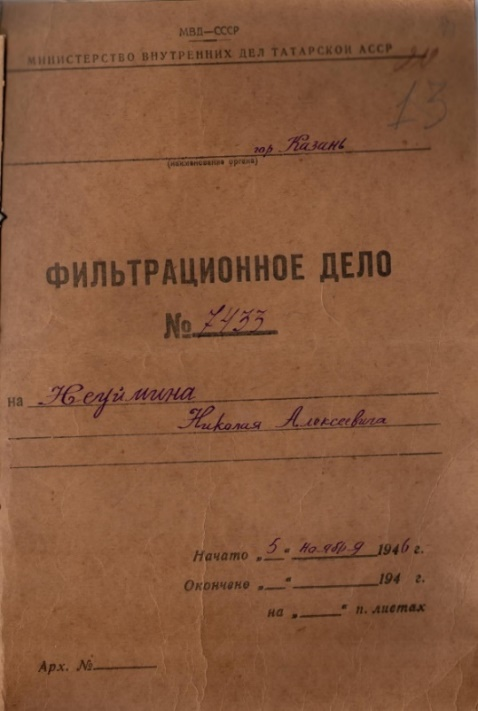 МВД—СССР
МИНИСТЕРСТВО ВНУТРЕННИХ ДЕЛ ТАТАРСКОЙ АССР
13
гор Казань
(наименование органа)
ФИЛЬТРАЦИОННОЕ ДЕЛО
№ 7433
на Неуймина
Николая Алексеевича
Начато „ 5 “ ноября 1946 г.
Окончено „ “ 194 г.
на „ “ п. листах
Арх. №